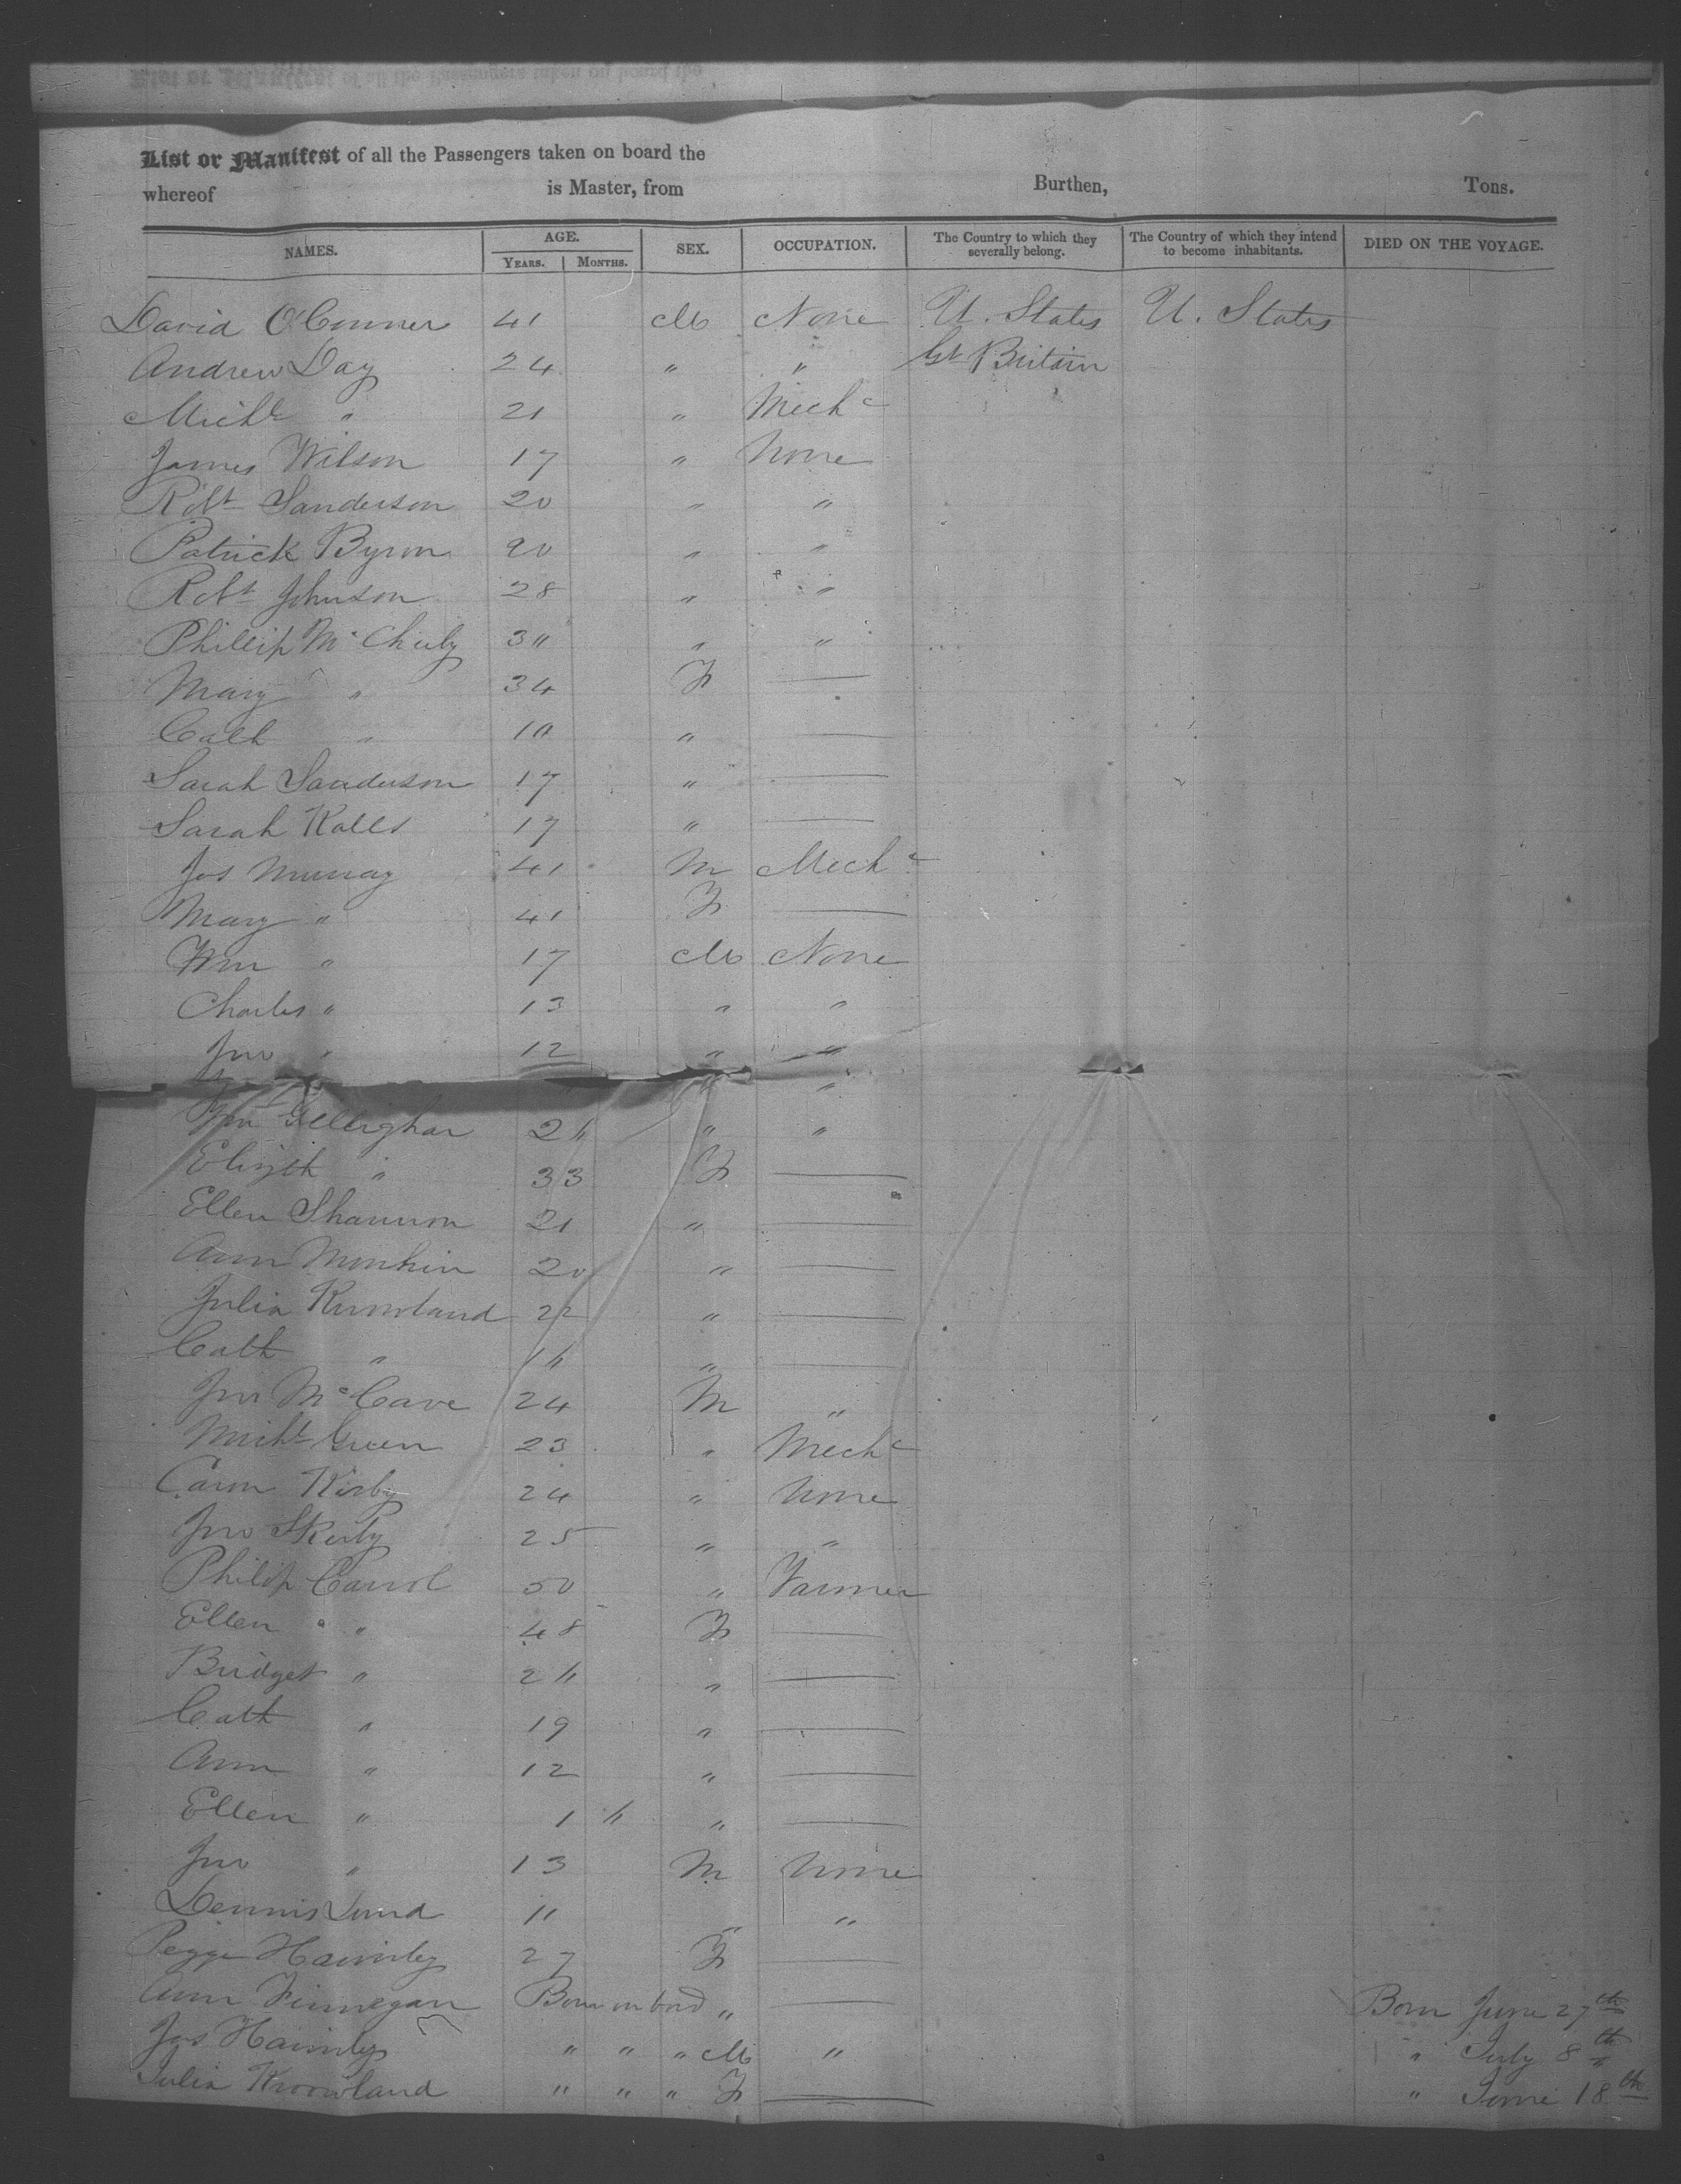 List or Manifest of all the Passengers taken on board the
whereof is Master, from Burthen, Tons.
NAMES. AGE. SEX. OCCUPATION. The Country to which they severally belong. The Country of which they intend to become inhabitants. DIED ON THE VOYAGE.
YEARS. MONTHS.
David O'Conner 41 M None U. States U. States
Andrew Day 24 " " Gt Britain
Michl " 21 " Mechc
James Wilson 17 " None
Robt Sanderson 20 " "
Patrick Byron 20 " "
Robt Johnson 28 " "
Phillip 3" " "
Mary " 34 F —
Cath " 10 " —
Sarah Sanderson 17 " —
Sarah 17 " —
Jos Murray 41 M Mechc
Mary " 41 F —
Wm " 17 M None
Charles " 13 " "
Jno " 12 " "
"
Gillighar " "
Elizth " 33 F —
Ellen Shannon 21 " —
Ann 20 " —
Julia 22 " —
Cath " " —
Jno McCave 24 M "
Michl Green 23 " Mechc
Kirby 24 " None
Jno 25 " "
Philip Carrol 50 " Farmer
Ellen " 48 F —
Bridget " " —
Cath " 19 " —
Ann " 12 " —
Ellen " 1 " —
Jno " 13 M None
Dennis 11 " "
27 F —
Ann Finnegan Born on bord " — Born June 27th
Jos " " " M " " July 8th
Julia Knowland " " " F — " June 18th